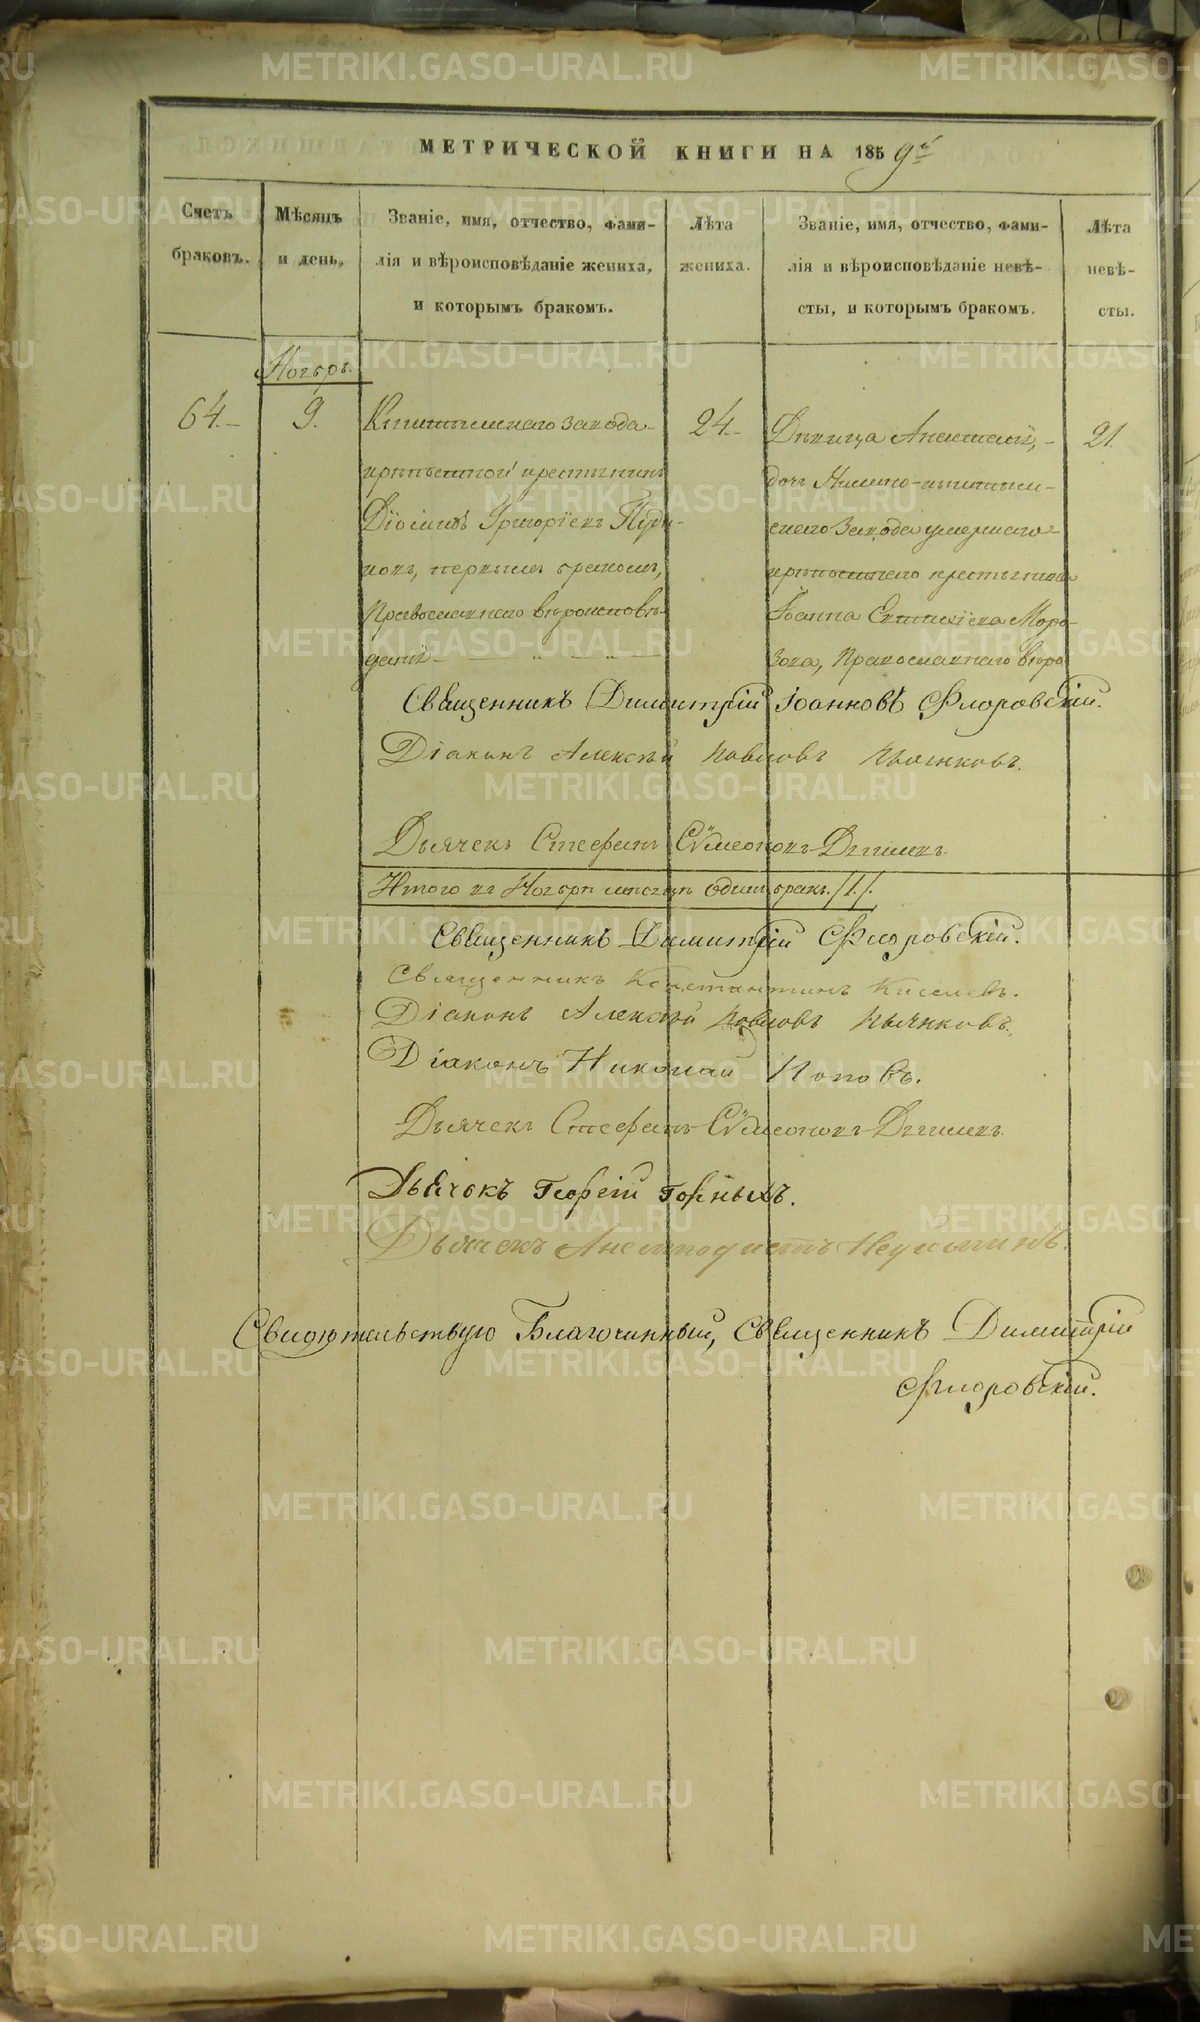 МЕТРИЧЕСКОЙ КНИГИ НА 1859й
Счетъ браковъ.
Мѣсяцъ и день.
Званіе, имя, отчество, фами-
лія и вѣроисповѣданіе жениха,
и которымъ бракомъ.
Лѣта жениха.
Званіе, имя, отчество, фами-
лія и вѣроисповѣданіе невѣ-
сты, и которымъ бракомъ.
Лѣта невѣ-
сты.
Ноябрь.
64.
9.
Кыштымскаго завода
крѣпостной крестьянинъ
Григоріевъ
первымъ бракомъ,
Православнаго вѣроисповѣ-
данія
24.
Дѣвица
дочь Нижне-кыштым-
скаго завода умершаго
крѣпостнаго крестьянина
Іоанна Моро-
зова, Православнаго вѣро
21.
Священникъ Димитрій Іоанновъ Флоровскій.
Діаконъ Алексѣй Павловъ
Дьячекъ Стефанъ Сѵмеоновъ
Итого въ Ноябрѣ мѣсяцѣ одинъ бракъ /1./.
Священникъ Димитрій Флоровскій.
Священникъ Константинъ Киселевъ.
Діаконъ Алексѣй Павловъ
Діаконъ Николай Поповъ.
Дьячекъ Стефанъ Сѵмеоновъ
Дьячокъ Георгій Горныхъ.
Дьячекъ Анемподистъ
Свидѣтельствую Благочинный, Священникъ Димитрій
Флоровскій.
METRIKI.GASO-URAL.RU